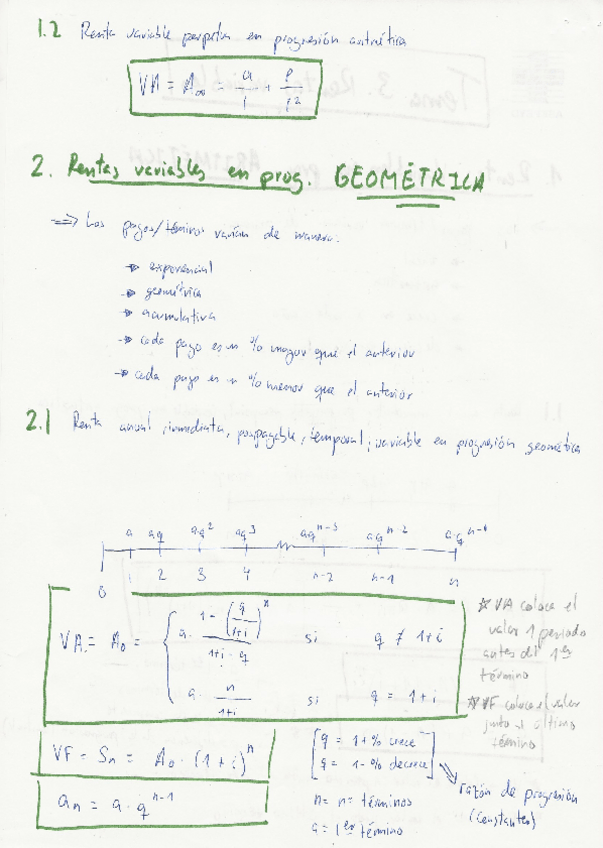 1.2 Renta variable perpetua en progresión aritmética
VA = A∞ = a/i + P/i²
2. Rentas variables en prog. GEOMÉTRICA
=> Los pagos/términos varían de manera:
→ exponencial
→ geométrica
→ acumulativa
→ cada pago es n % mayor que el anterior
→ cada pago es n % menor que el anterior
2.1 Renta anual, inmediata, pospagable, temporal, variable en progresión geométrica
a aq aq² aq³ aq^n-3 aq^n-2 a·q^n-1
0 1 2 3 4 n-2 n-1 n
VA = A₀ = { a · (1 - (q/1+i)^n) / (1+i-q) si q ≠ 1+i
a · n/(1+i) si q = 1+i
* VA coloca el
valor 1 periodo
antes del 1er
término
* VF coloca el valor
junto al último
término
VF = Sn = A₀ · (1+i)^n
an = a · q^n-1
[q = 1+% crece
q = 1-% decrece]
=> razón de progresión
(constantes)
n = nº términos
a = 1er término